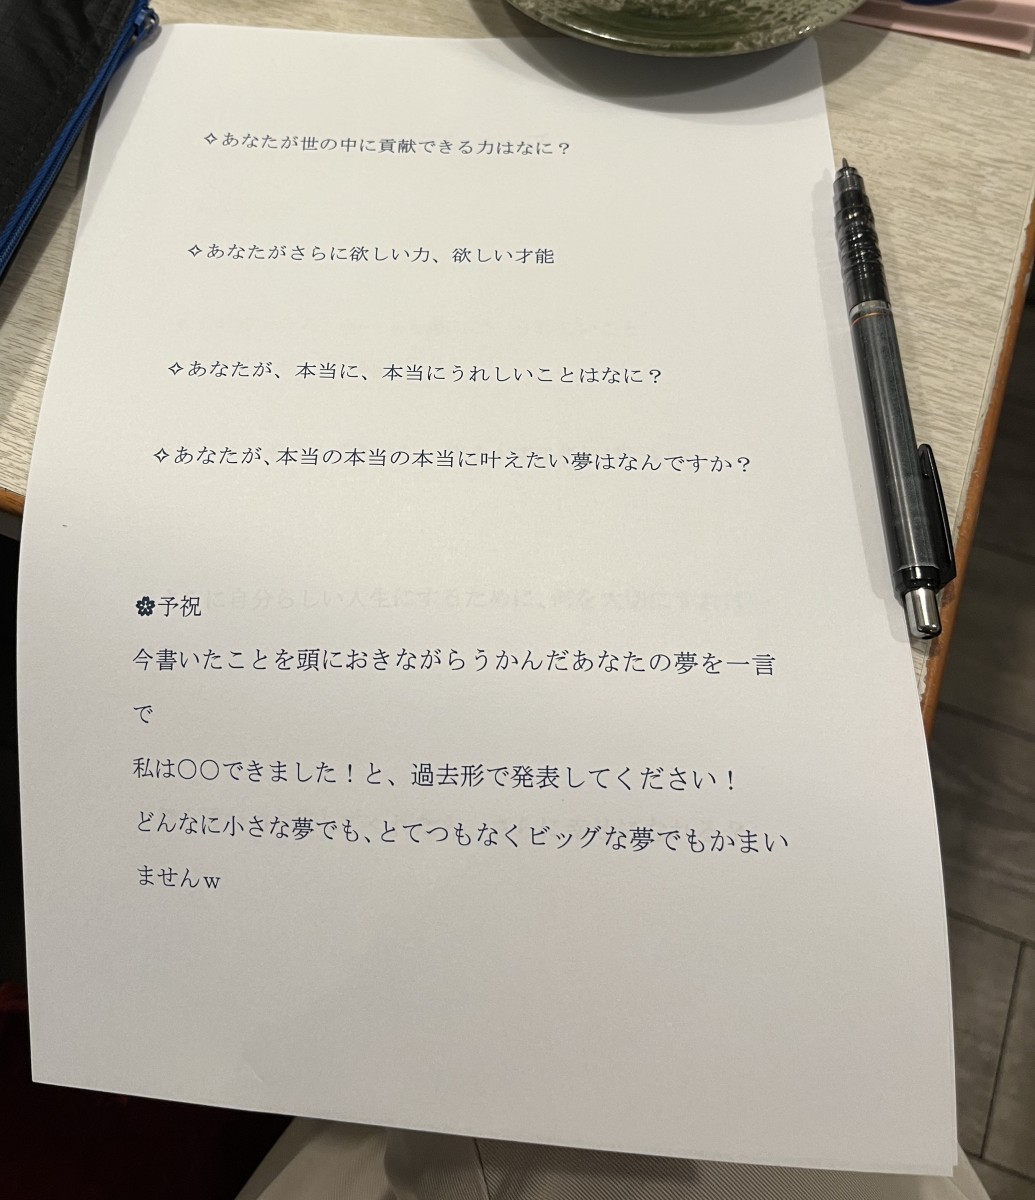 ✧あなたが世の中に貢献できる力はなに？
✧あなたがさらに欲しい力、欲しい才能
✧あなたが、本当に、本当にうれしいことはなに？
✧あなたが、本当の本当の本当に叶えたい夢はなんですか？
🌸予祝
今書いたことを頭におきながらうかんだあなたの夢を一言
で
私は〇〇できました！と、過去形で発表してください！
どんなに小さな夢でも、とてつもなくビッグな夢でもかまい
ませんｗ